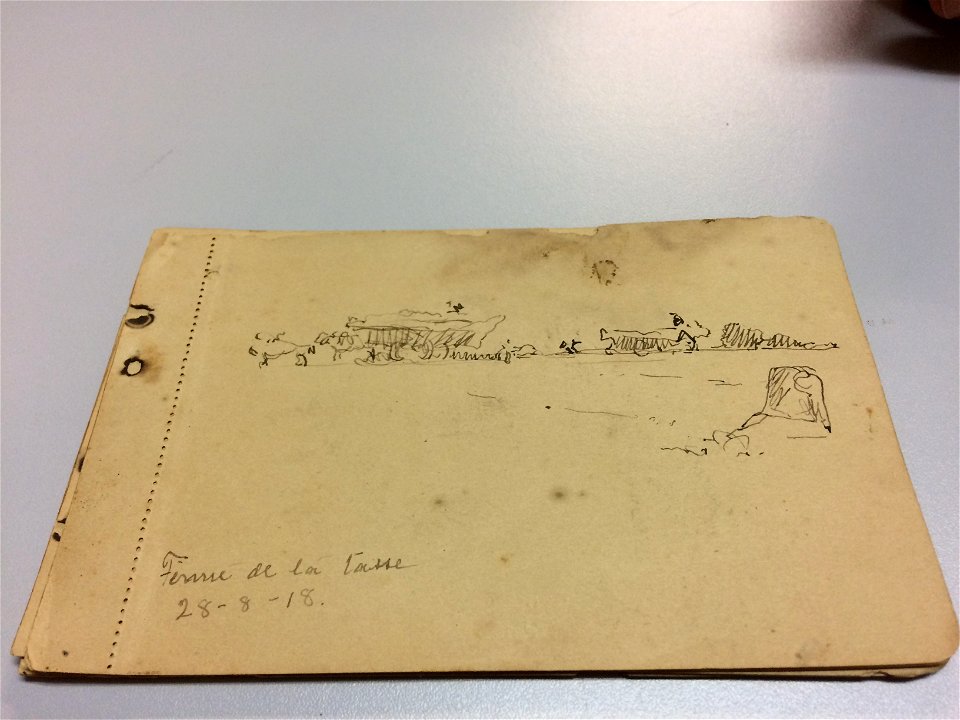 Ferme de la Tasse
28-8-18.